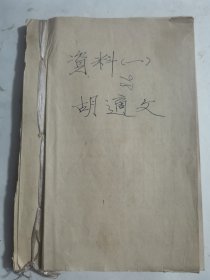 資料(一)
胡適文